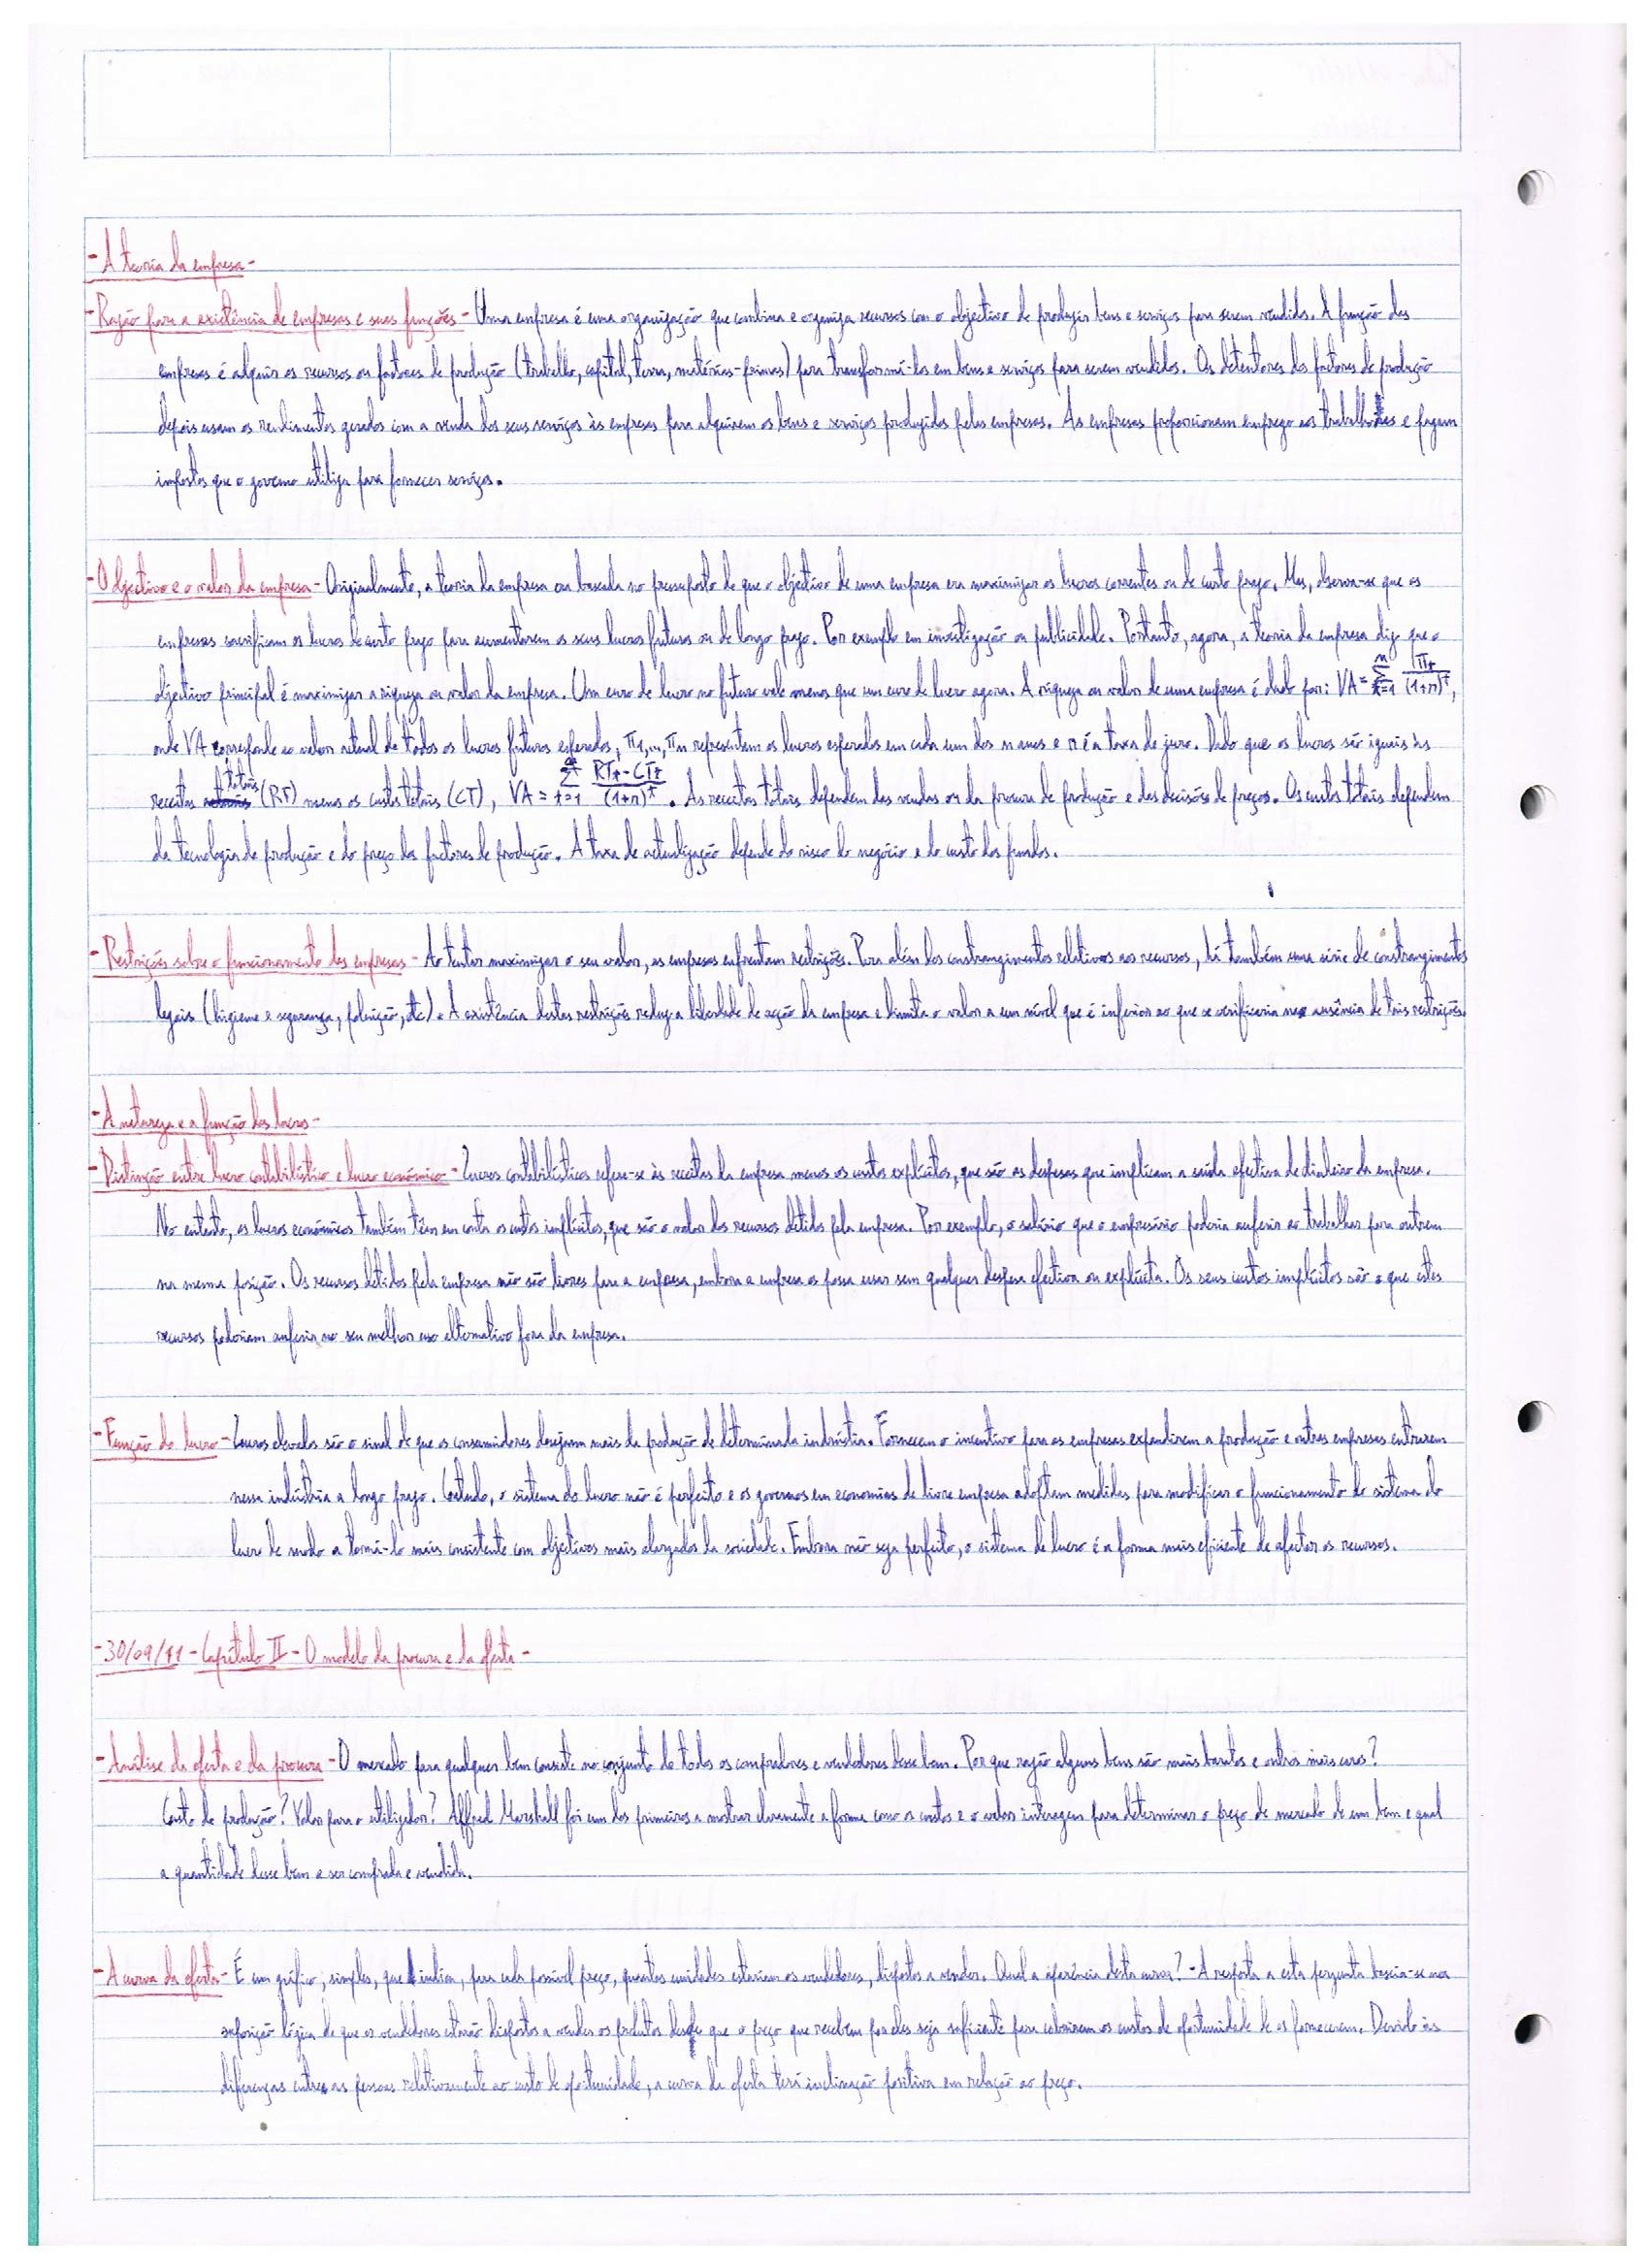 - A teoria da empresa -
- Razão para a existência de empresas e suas funções - Uma empresa é uma organização que combina e organiza recursos com o objectivo de produzir bens e serviços para serem vendidos. A função das
empresas é adquirir os recursos ou factores de produção (trabalho, capital, terra, matérias-primas) para transformá-los em bens e serviços para serem vendidos. Os detentores dos factores de produção
depois usam os rendimentos gerados com a venda dos seus serviços às empresas para adquirirem os bens e serviços produzidos pelas empresas. As empresas proporcionam emprego aos e pagam
impostos que o governo utiliza para fornecer serviços.
- Objectivo e o valor da empresa - Originalmente, a teoria da empresa era baseada no pressuposto de que o objectivo de uma empresa era maximizar os lucros correntes ou de curto prazo. Mas, observa-se que as
empresas sacrificam os lucros de curto prazo para aumentarem os seus lucros futuros ou de longo prazo. Por exemplo em investigação ou publicidade. Portanto, agora, a teoria da empresa diz que o
objectivo principal é maximizar a riqueza ou valor da empresa. Um euro de lucro no futuro vale menos que um euro de lucro agora. A riqueza ou valor de uma empresa é dado por: VA = Σ_{t=1}^{n} πt/(1+r)^t,
onde VA corresponde ao valor actual de todos os lucros futuros esperados, π1,...,πn representam os lucros esperados em cada um dos n anos e r é a taxa de juro. Dado que os lucros são iguais às
receitas totais (RT) menos os custos totais (CT), VA = Σ_{t=1}^{n} RTt-CTt/(1+r)^t. As receitas totais dependem das vendas ou da procura de produção e das decisões de preços. Os custos totais dependem
da tecnologia de produção e do preço dos factores de produção. A taxa de actualização depende do risco do negócio e do custo dos fundos.
- Restrições sobre o funcionamento das empresas - Ao tentar maximizar o seu valor, as empresas enfrentam restrições. Para além dos constrangimentos relativos aos recursos, há também uma série de constrangimentos
legais (higiene e segurança, poluição, etc). A existência destas restrições reduz a liberdade de acção da empresa e limita o valor a um nível que é inferior ao que se verificaria na ausência de tais restrições.
- A natureza e a função dos lucros -
- Distinção entre lucro contabilístico e lucro económico - Lucros contabilísticos refere-se às receitas da empresa menos os custos explícitos, que são as despesas que implicam a saída efectiva de dinheiro da empresa.
No entanto, os lucros económicos também têm em conta os custos implícitos, que são o valor dos recursos detidos pela empresa. Por exemplo, o salário que o empresário poderia auferir ao trabalhar para outrem
na mesma posição. Os recursos detidos pela empresa não são livres para a empresa, embora a empresa os possa usar sem qualquer despesa efectiva ou explícita. Os seus custos implícitos são o que estes
recursos poderiam auferir no seu melhor uso alternativo fora da empresa.
- Função do lucro - Lucros elevados são o sinal de que os consumidores desejam mais da produção de determinada indústria. Fornecem o incentivo para as empresas expandirem a produção e outras empresas entrarem
nessa indústria a longo prazo. Contudo, o sistema do lucro não é perfeito e os governos em economias de livre empresa adoptam medidas para modificar o funcionamento do sistema do
lucro de modo a torná-lo mais consistente com objectivos mais alargados da sociedade. Embora não seja perfeito, o sistema de lucro é a forma mais eficiente de afectar os recursos.
- 30/09/11 - Capítulo II - O modelo da procura e da oferta -
- Análise da oferta e da procura - O mercado para qualquer bem consiste no conjunto de todos os compradores e vendedores desse bem. Por que razão alguns bens são mais baratos e outros mais caros?
Custo de produção? Valor para o utilizador? Alfred Marshall foi um dos primeiros a mostrar claramente a forma como os custos e o valor interagem para determinar o preço de mercado de um bem e qual
a quantidade desse bem a ser comprada e vendida.
- A curva da oferta - É um gráfico, simples, que indica, para cada possível preço, quantas unidades estariam os vendedores, dispostos a vender. Qual a aparência desta curva? - A resposta a esta pergunta baseia-se na
suposição lógica de que os vendedores estarão dispostos a vender os produtos desde que o preço que recebem por eles seja suficiente para cobrirem os custos de oportunidade de os fornecerem. Devido às
diferenças entre as pessoas relativamente ao custo de oportunidade, a curva da oferta terá inclinação positiva em relação ao preço.